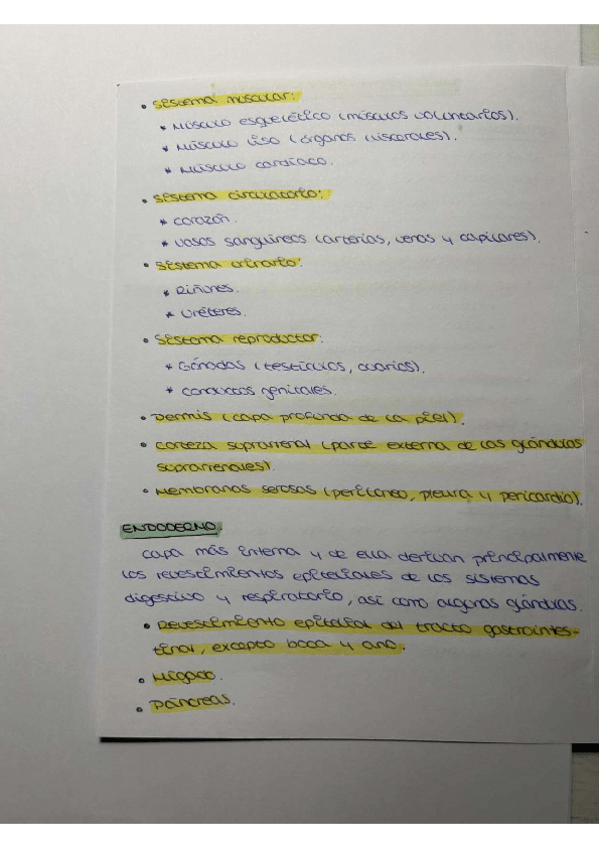 • Sistema muscular:
* Músculo esquelético (músculos voluntarios).
* Músculo liso (órganos viscerales).
* Músculo cardíaco.
• Sistema circulatorio:
* Corazón.
* Vasos sanguíneos (arterias, venas y capilares).
• Sistema urinario:
* Riñones.
* Uréteres.
• Sistema reproductor:
* Gónadas (testículos, ovarios).
* Conductos genitales.
• Dermis (capa profunda de la piel).
• Corteza suprarrenal (parte externa de las glándulas
suprarrenales).
• Membranas serosas (peritoneo, pleura y pericardio).
ENDODERMO
Capa más interna y de ella derivan principalmente
los revestimientos epiteliales de los sistemas
digestivo y respiratorio, así como algunas glándulas.
• Revestimiento epitelial del tracto gastrointes-
tinal, excepto boca y ano.
• Hígado.
• Páncreas.